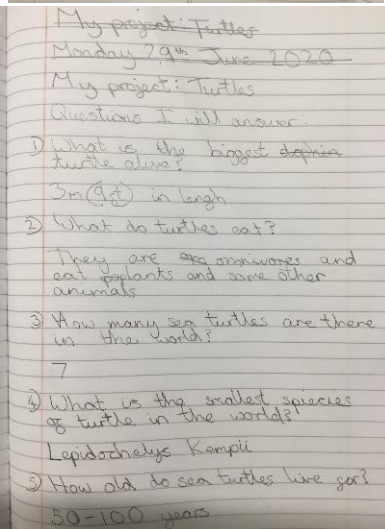 My project: Turtles
Monday 29th June 2020
My project: Turtles
Questions I will answer:
1) What is the biggest dophin
turtle alive?
3m (9ft) in lengh
2) What do turtles eat?
They are omnivores and
eat plants and some other
animals
3) How many sea turtles are there
in the world?
7
4) What is the smallest spiecies
of turtle in the world?
Lepidochelys Kempii
5) How old do sea turtles live for?
50-100 years